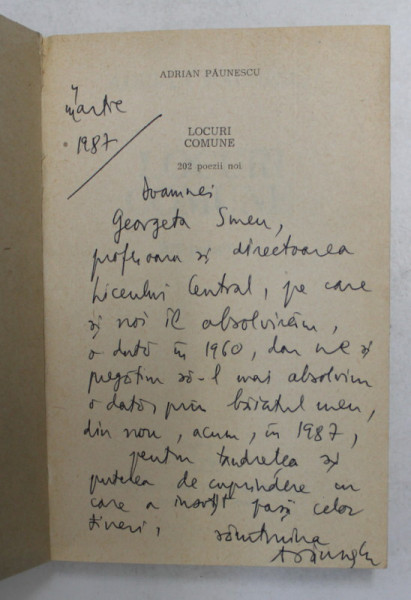 ADRIAN PĂUNESCU
martie
1987
LOCURI
COMUNE
202 poezii noi
Doamnei
Georgeta Smeu,
profesoara și directoarea
Liceului Central, pe care
și noi îl absolvirăm,
o dată în 1960, dar ne și
pregătim să-l mai absolvim
o dată, prin băiatul meu,
din nou, acum, în 1987,
pentru tandrețea și
puterea de cuprindere cu
care a însoțit pașii celor
tineri,